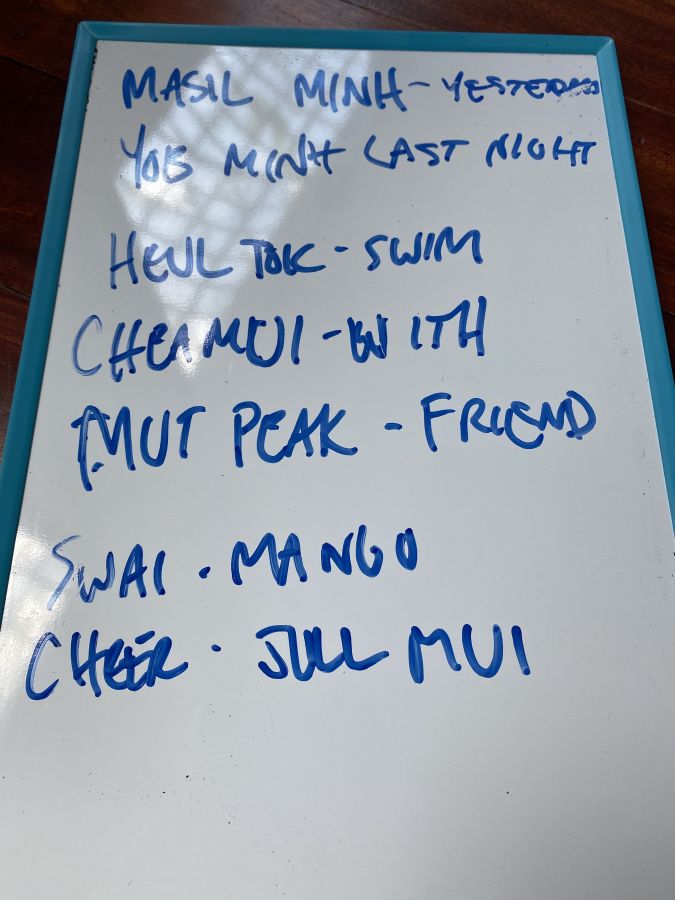 MASIL MINH - YESTERDAY
YOB MINH LAST NIGHT
HEUL TOK - SWIM
CHEAMUI - WITH
MUT PEAK - FRIEND
SWAI . MANGO
CHEER . JULL MUI